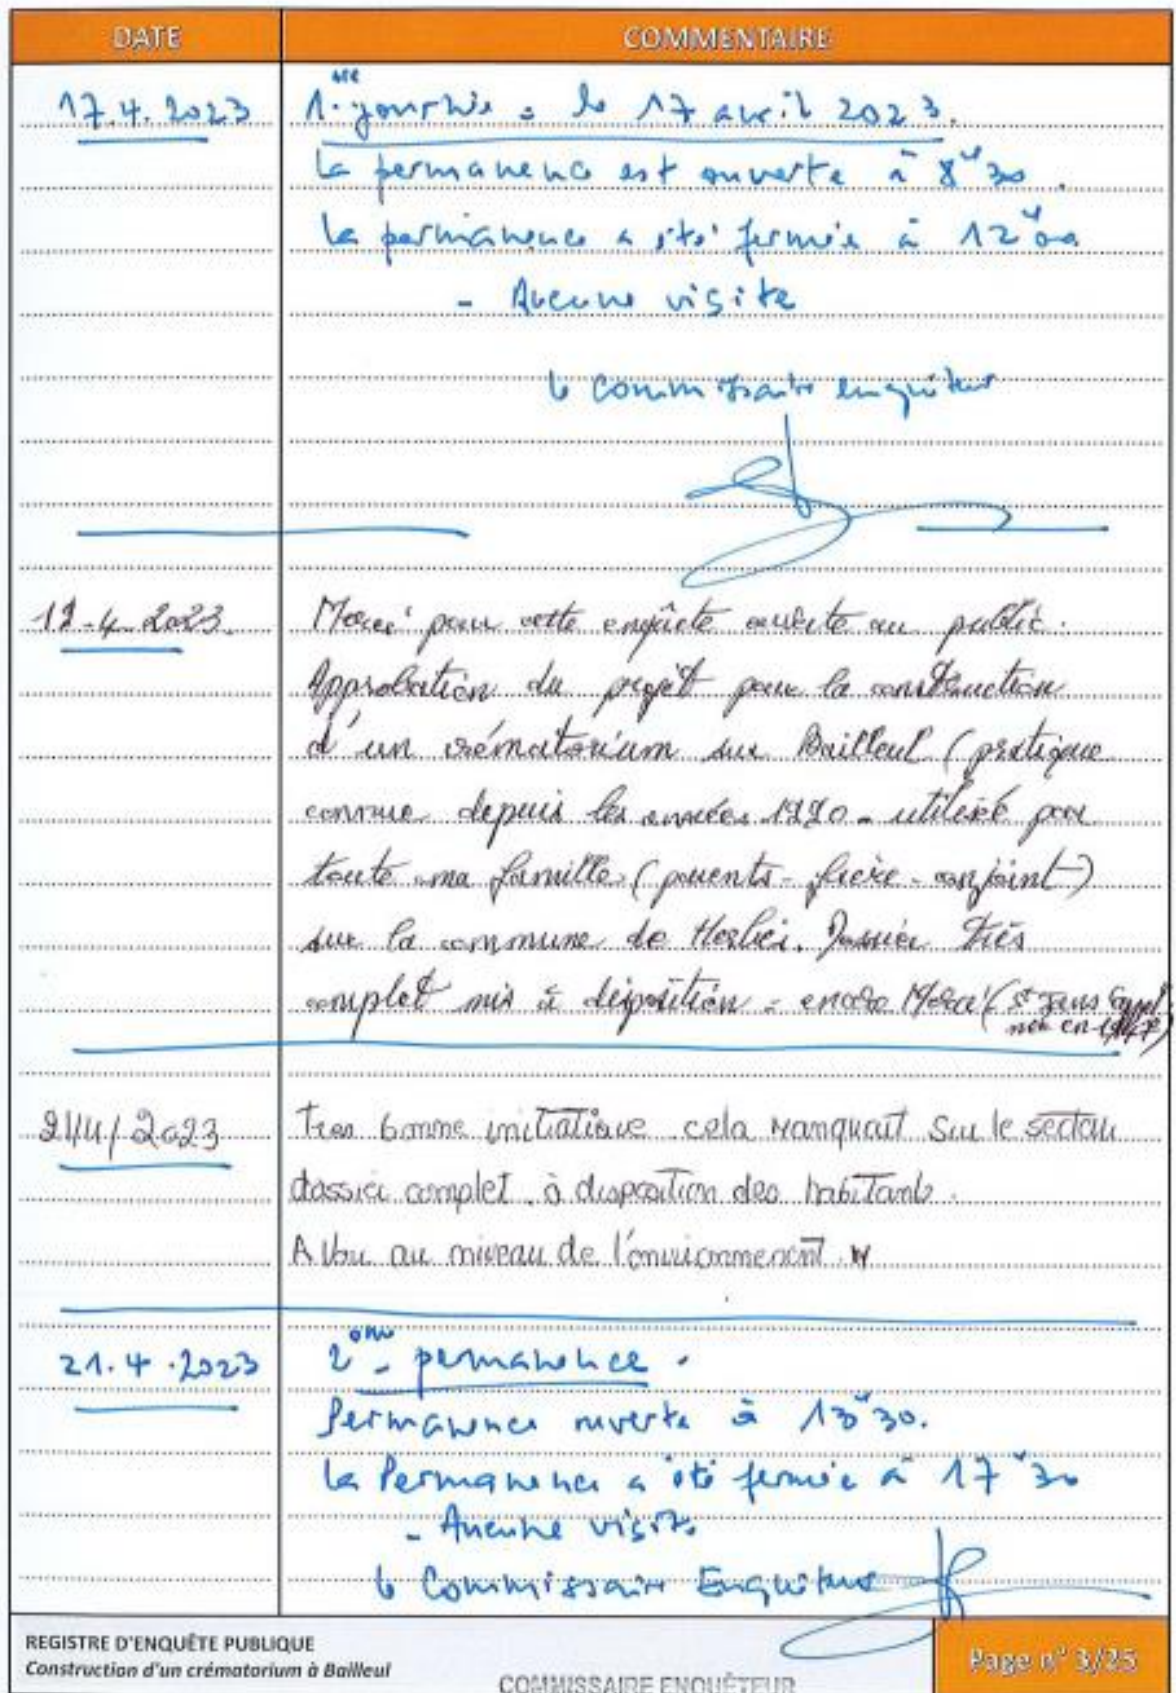 DATE
COMMENTAIRE
17.4.2023
1.ère journée = le 17 avril 2023.
La permanence est ouverte à 8H30.
La permanence a été fermée à 12H00
- Aucune visite
le Commissaire enquêteur
Merci pour cette enquête ouverte au public.
Approbation du projet pour la construction
d'un crématorium sur Bailleul (pratique
connue depuis les années 1990 - utilisé pour
toute ma famille (parents - frère - conjoint)
sur la commune de Herlies. Dossier très
complet mis à disposition - encore Merci (St Jans Cappel
2023
Très bonne initiative cela manquait sur le secteur
dossier complet à disposition des habitants.
au niveau de l'environnement.
21.4.2023
2ème permanence.
Permanence ouverte à 13H30.
La Permanence a été fermée à 17H30
- Aucune visite
le Commissaire Enquêteur
REGISTRE D'ENQUÊTE PUBLIQUE
Construction d'un crématorium à Bailleul
COMMISSAIRE ENQUÊTEUR
Page n° 3/25